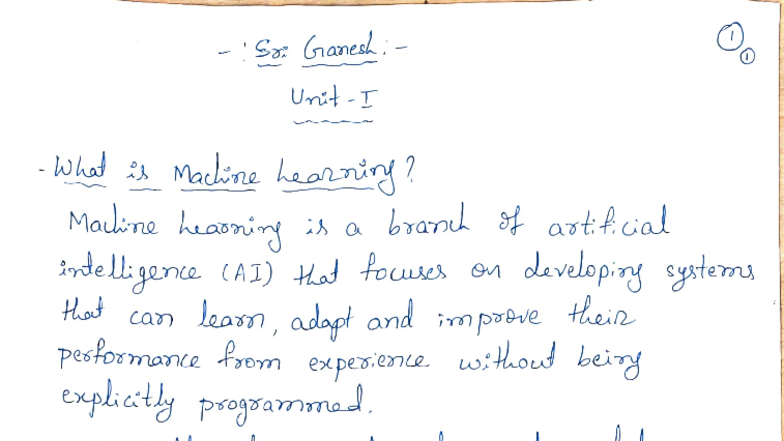 - : Sri Ganesh : -
1
1
Unit - I
- What is Machine Learning?
Machine Learning is a branch of artificial
intelligence (AI) that focuses on developing systems
that can learn, adapt and improve their
performance from experience without being
explicitly programmed.